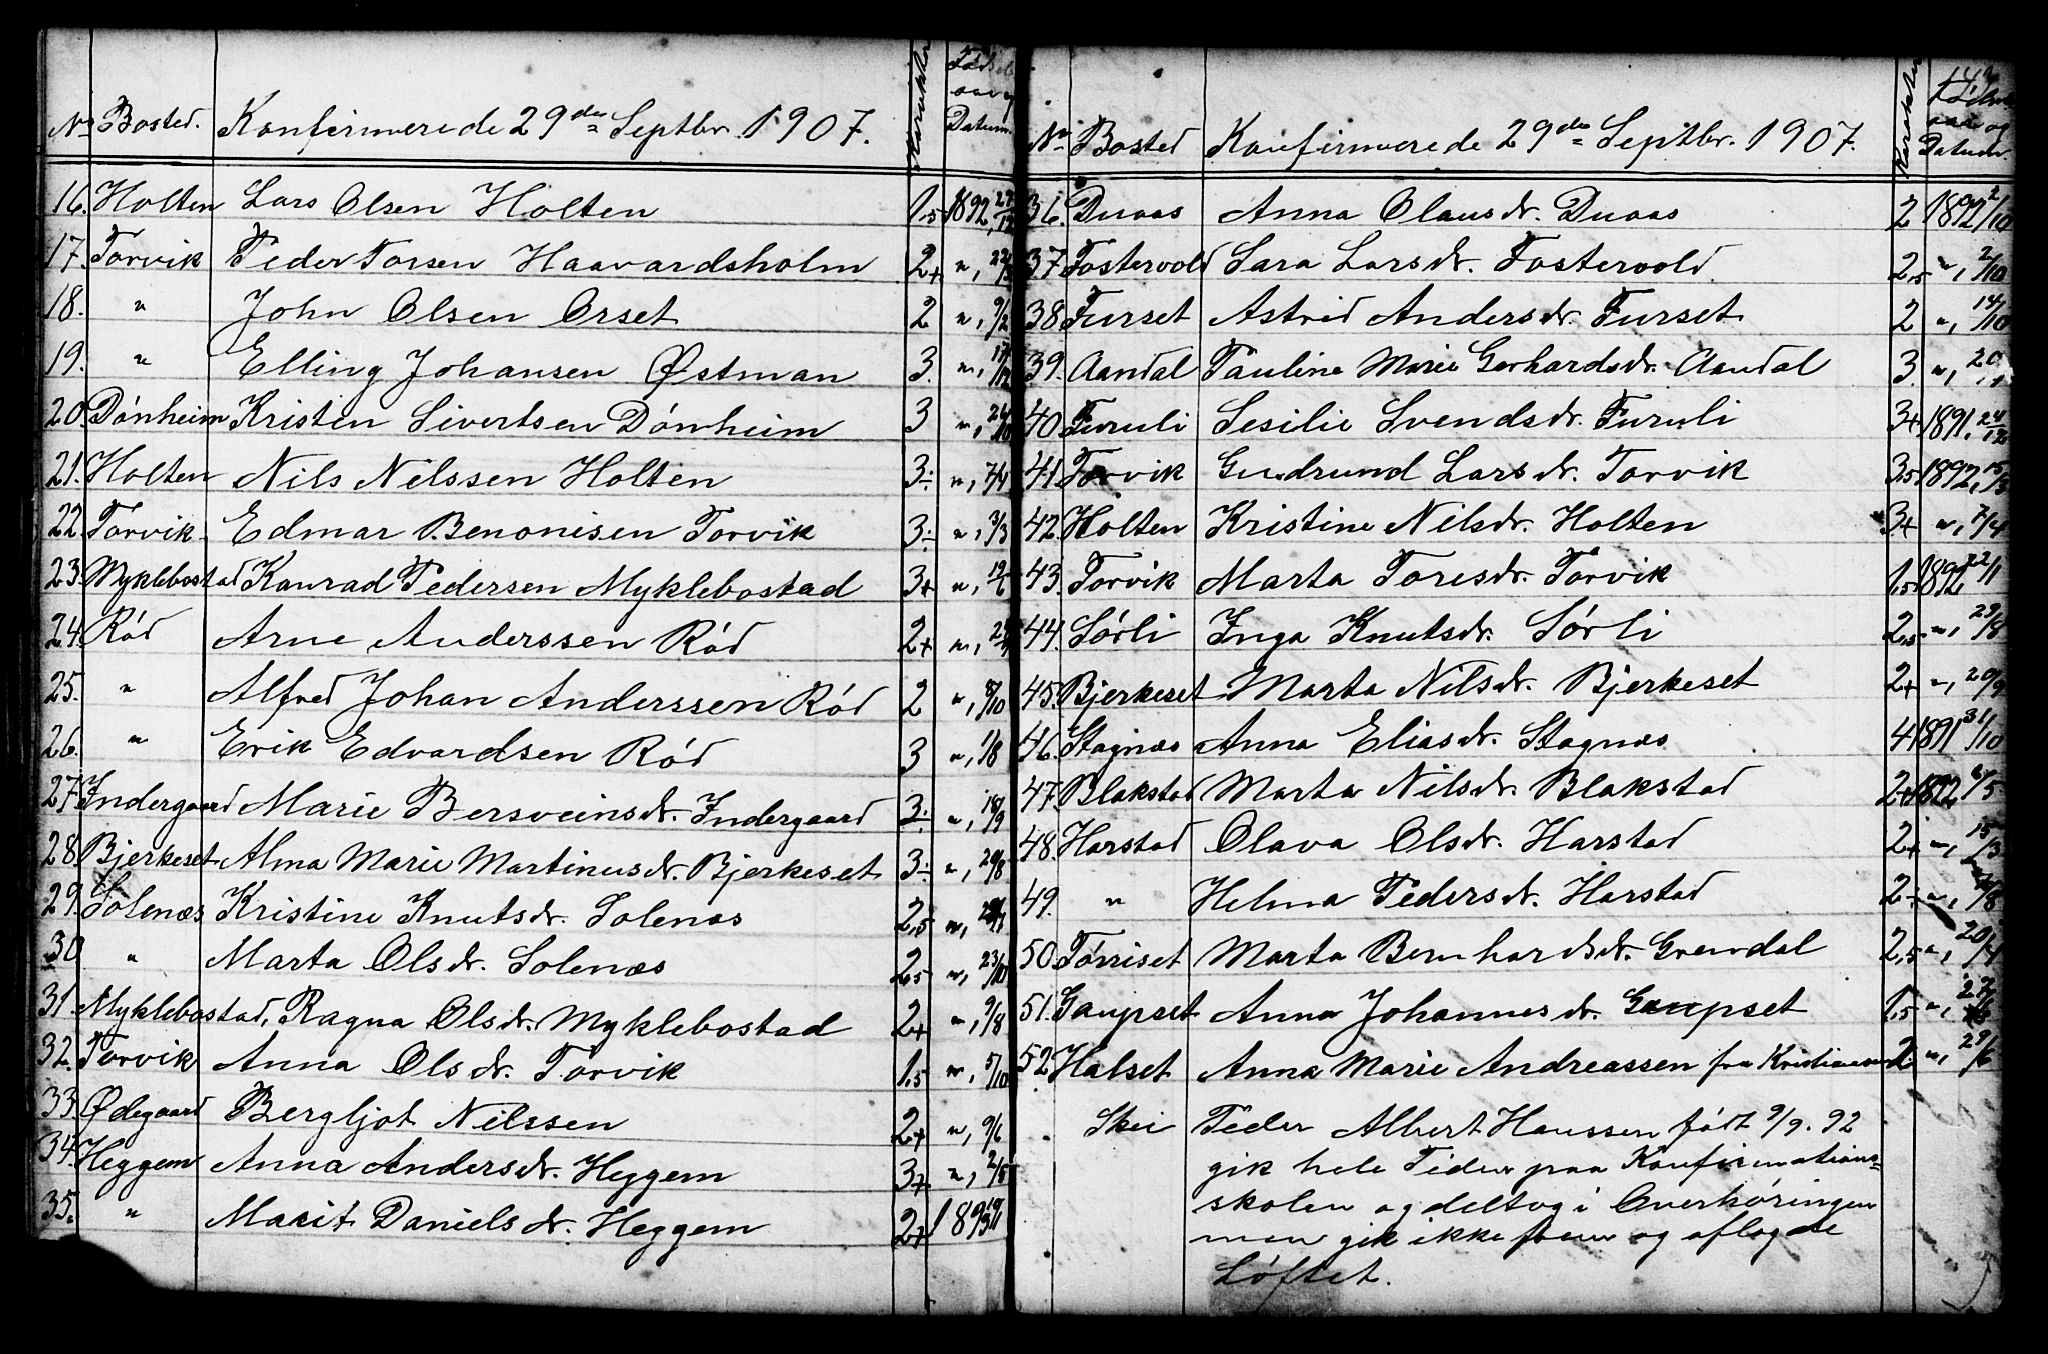 No Bosted. Konfirmerede 29de Septbr. 1907. Karakter Datum.
16. Holten Lars Olsen Holten 1,5 1892, 29/12
17. Torvik Peder Torsen Haavardsholm 2+ ", 22/3
18. " John Olsen Orset 2 ", 9/2
19. " Elling Johansen Østman 3. ", 17/12
20. Dónheim Kristen Sivertsen Dónheim 3 ", 26/10
21. Holten Nils Nilssen Holten 3÷ ", 7/4
22. Torvik Edmar Benonisen Torvik 3÷ ", 3/3
23. Myklebostad Konrad Pedersen Myklebostad 3+ ", 19/6
24. Ród Arne Anderssen Ród 2+ ",
25. " Alfred Johan Anderssen Ród 2 ", 8/10
26. " Erik Edvardsen Ród 3 ", 1/8
27. Indergaard Marie Bersveinsdr. Indergaard 3÷ ", 18/9
28. Bjerkeset Alma Marie Martinusdr. Bjerkeset 3÷ ", 20/8
29. Solenæs Kristine Knutsdr. Solenæs 2,5 ",
30 " Marta Olsdr. Solenæs 2,5 ", 23/10
31. Myklebostad, Ragna Olsdr. Myklebostad 2+ ", 9/8
32. Torvik Anna Olsdr. Torvik 1,5 ", 5/10
33. Ødegaard Bergljot Nilssen 2+ ", 9/6
34. Heggem Anna Andersdr. Heggem 3+ ", 2/5
35. " Marit Danielsdr. Heggem 2+
No Bosted Konfirmerede 29de Septbr. 1907. Karakter aar og Datum.
36. Duaas Anna Olausdr. Duaas 2 1892 2/10
37 Fostervold Sara Larsdr. Fostervold 2,5 ", 2/10
38 Furset Astrid Andersdr. Furset 2 ", 14/10
39. Aandal Pauline Marie Gerhardsdr. Aandal 3. ",
40. Furuli Sesilie Svendsdr. Furuli 3+ 1891, 24/12
41. Torvik Gudrund Larsdr. Torvik 3,5 1892, 15/3
42. Holten Kristine Nilsdr. Holten 3+ ", 7/4
43. Torvik Marta Toresdr. Torvik 1,5 1892 22/1
44. Sórli Inga Knutsdr. Sórli 2,5 ", 29/8
45. Bjerkeset Marta Nilsdr. Bjerkeset 2+ ", 20/9
46. Stagnæs Anna Eliasdr. Stagnæs 4 1891 31/10
47. Blakstad Marta Nilsdr. Blakstad 2+ 1892 6/5
48. Harstad Olava Olsdr. Harstad 2+ ", 15/3
49. " Helma Pedersdr. Harstad 2÷ ",
50. Tórriset Marta Bernhardsdr. Grendal 2,5 ", 20/4
51. Gaupset Anna Johannesdr. Gaupset 1,5 ",
52 Halset Anna Marie Andreassen fra Kristiansund 2 ", 29/6
Skei Peder Albert Hanssen fódt 9/9. 92
gik hele Tiden paa Konfirmations-
skolen og deltog i Overhóringen
men gik ikke frem og aflagde
Lóftet.